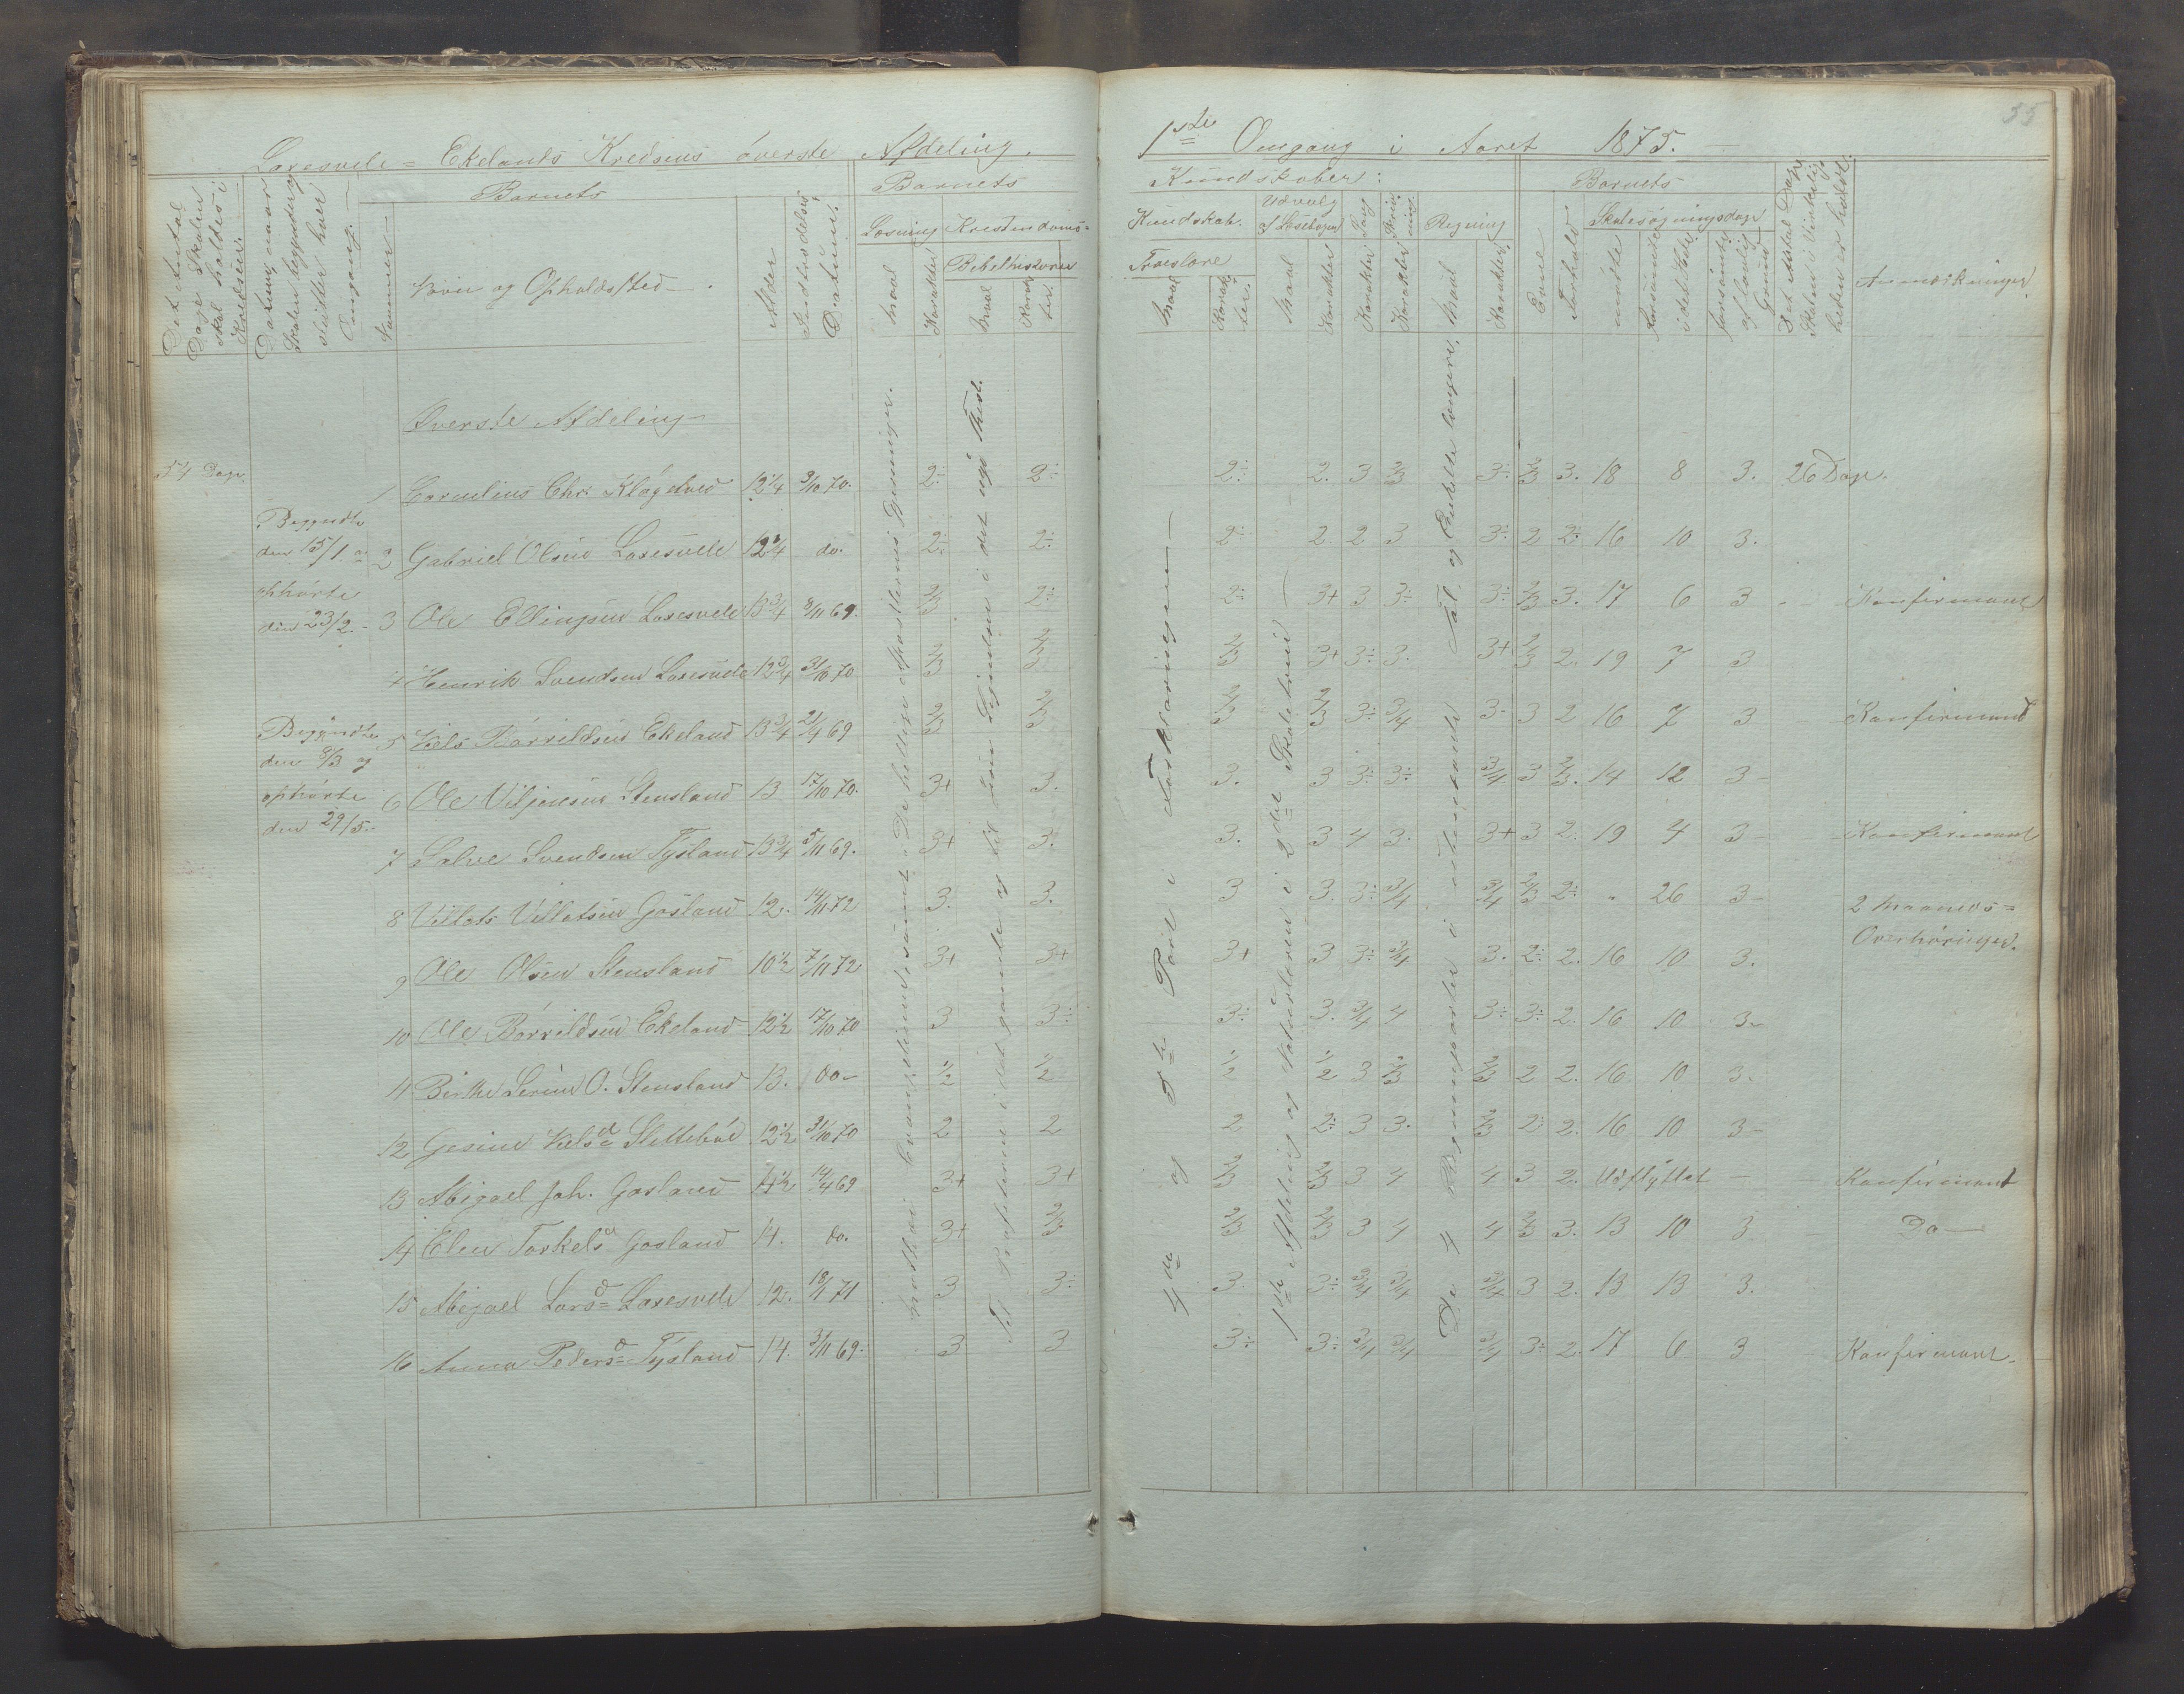 35
Loxesvele = Ekelands Kredsens øverste Afdeling.
1ste Omgang i Aaret 1875.
Det Antal Dage Skolen skal holdes i Kredsen.
Datum, naar Skolen begynder og slutter hver Omgang.
Nummer
Barnets
Navn og Opholdssted
Alder
Indtrædelses Datum.
Barnets
Læsning
Maal
Karakter
Kristendoms=
Bibelhistorie
Maal
Karakter.
Kundskaber:
Kundskab.
Troeslære
Maal
Karakter.
Udvalg af Læsebogen
Maal
Karakter
Sang
Karakter
Skrivning
Karakter
Regning
Maal
Karakter.
Barnets
Evne
Forhold
Skolesøgningsdage
mødte
forsømte i det Hele
forsømte af lovlig Grund
Det Antal Dage Skolen i Virkeligheden er holdt.
Anmærkninger
Øverste Afdeling
54 Dage
Begyndte
den 15/1. og
ophørte
den 23/2.
Begyndte
den 8/3 og
ophørte
den 29/5.
1 Cornelius Chr. 12 1/4 3/10 70. 2÷ 2÷ 2÷ 2. 3 2/3 3÷ 2/3 3. 18 8 3. 26 Dage.
2 Gabriel Olsen Loxesvele 12 1/4 do. 2÷ 2÷ 2÷ 2 2 3 3÷ 2 2÷ 16 10 3.
3 Ole Ellingsen Loxesvele 13 3/4 8/11 69. 2/3 2÷ 2÷ 3+ 3 3÷ 3÷ 2/3 3. 17 6 3 Konfirmant
4 Henrik Svendsen Loxesvele 12 3/4 31/10 70 2/3 2/3 2/3 3+ 3÷ 3. 3+ 2/3 2. 19 7 3
5 Niels Børrildsen Ekeland 13 3/4 21/4 69 2/3 2/3 2/3 2/3 3÷ 3/4 3- 3 2 16 7 3 Konfirmant
6 Ole Viljensen Stensland 13 17/10 70. 3+ 3. 3. 3 3÷ 3÷ 3/4 3 2/3. 14 12 3-
7 Salve Svendsen Tysland 13 3/4 5/11 69. 3+ 3. 3. 3 4 3. 3+ 3 2. 19 4 3- Konfirmant
8 Villats Villatsen Gosland 12. 14/11 72 3. 3. 3 3. 3÷ 3/4 3/4 2/3 2÷ " 26 3- 2 Maaneds=
Overhøringer.
9 Ole Olsen Stensland 10 1/2 7/11 72 3+ 3+ 3+ 3 3÷ 3/4 3. 2÷ 2. 16 10 3.
10 Ole Børrildsen Ekeland 12 1/2 17/10 70 3 3÷ 3÷ 3. 3/4 4 3÷ 3÷ 2. 16 10 3-
11 Birthe Serine O. Stensland 13. do- 1/2 1/2 1/2 1/2 3 2/3 2/3 2 2. 16 10 3.
12 Gesine Nielsd. 12 1/2 31/10 70 2 2 2 2÷ 3 3. 2/3 2 2. 16 10 3-
13 Abigael Joh. Gosland 14 1/2 14/4 69 3+ 3+ 2/3 2/3 3 4 4 3 2. Udflyttet Konfirmant
14 Elen Torkelsd Gosland 14. do. 3+ 2/3 2/3 2/3 3 4 4 2/3 3. 13 10 3 Do
15 Abigael Larsd= Loxesvele 12. 18/1 71 3 3÷ 3. 3÷ 3/4 3/4 3/4 3 2. 13 13 3.
16 Anna Pedersd= Tysland 14. 3/11 69. 3 3 3÷ 3÷ 3/4 3/4 3/4 3÷ 2. 17 6 3 Konfirmant.
Mathæi Evangelium, samt De hellige Apostlernes Gjerninger.
Til Profeterne i det gamle og til Jesu Lignelser i det nye Test.
4de og 5te Part i Forklaringen
1ste Afdeling og Naturlæren i 2det Skoletrin
De 4 Regningsarter i ubenævnte Tal, og Enkelte længere.